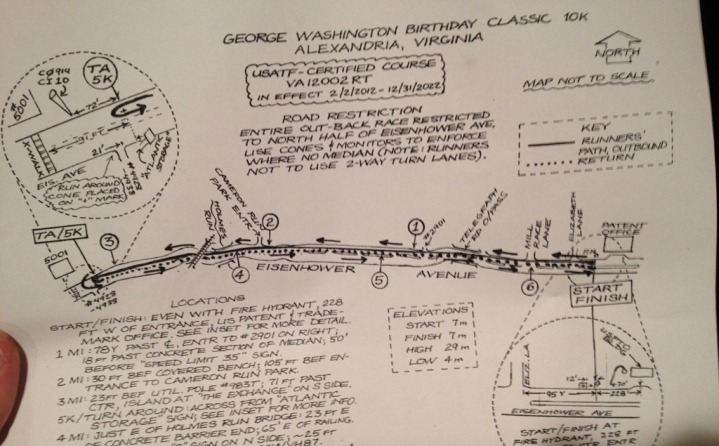 GEORGE WASHINGTON BIRTHDAY CLASSIC 10K
ALEXANDRIA, VIRGINIA
USATF-CERTIFIED COURSE
VA12002RT
IN EFFECT 2/2/2012 - 12/31/2022
NORTH
MAP NOT TO SCALE
ROAD RESTRICTION
ENTIRE OUT-BACK RACE RESTRICTED
TO NORTH HALF OF EISENHOWER AVE.
USE CONES & MONITORS TO ENFORCE
WHERE NO MEDIAN (NOTE: RUNNERS
NOT TO USE 2-WAY TURN LANES).
KEY
RUNNERS'
PATH, OUTBOUND
RETURN
TA
5K
# 5001
72'
X-WALK
21'
ATLANTIC
STORAGE
EIS. AVE
RUN AROUND
CONE PLACED
ON "+" MARK
TA/5K
5001
3
HOLMES
RUN
CAMERON RUN
PARK ENTR
2
4
EISENHOWER
AVENUE
5
1
#2901
TELEGRAPH
RD O/PASS
MILL
RACE
LANE
6
ELIZABETH
LANE
PATENT
OFFICE
START
FINISH
LOCATIONS
START/FINISH: EVEN WITH FIRE HYDRANT, 228
FT W OF ENTRANCE, US PATENT & TRADE-
MARK OFFICE. SEE INSET FOR MORE DETAIL.
1 MI: 78Y PAST ℄; ENTR TO #2901 ON RIGHT;
18 FT PAST CONCRETE SECTION OF MEDIAN; 50'
BEFORE "SPEED LIMIT 35" SIGN.
2 MI: 30 FT BEF COVERED BENCH; 105 FT BEF EN-
TRANCE TO CAMERON RUN PARK.
3 MI: 23 FT BEF UTIL. POLE #9837; 71 FT PAST
CTR, ISLAND AT "THE EXCHANGE" ON S SIDE.
5K/TURN AROUND: ACROSS FROM "ATLANTIC
STORAGE" SIGN; SEE INSET FOR MORE INFO.
4 MI: JUST E OF HOLMES RUN BRIDGE: 23 FT E
OF CONCRETE BARRIER END; 65' E OF RAILING.
SIGN ON N SIDE; ~25 FT
ELEVATIONS
START 7m
FINISH 7m
HIGH 29m
LOW 4m
ELIZ. LA
12'
95 Y
228
EISENHOWER AVE
START/FINISH AT
FIRE HYDRANT, 228 FT